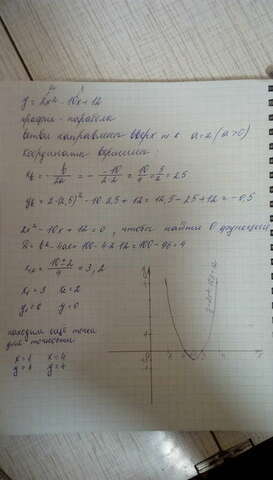 y = 2x² - 10x + 12
график - парабола
ветви направлены вверх т к a = 2 (a > 0)
координаты вершины
x₀ = - b/2a = - -10/2·2 = 10/4 = 5/2 = 2,5
y₀ = 2·(2,5)² - 10·2,5 + 12 = 12,5 - 25 + 12 = -0,5
2x² - 10x + 12 = 0, чтобы найти 0 функции
D = b² - 4ac = 100 - 4·2·12 = 100 - 96 = 4
x₁,₂ = 10±2/4 = 3, 2
x₁ = 3 x₂ = 2
y₁ = 0 y = 0
находим ещё точки
для точности
x = 1 x = 4
y = 4 y = 4